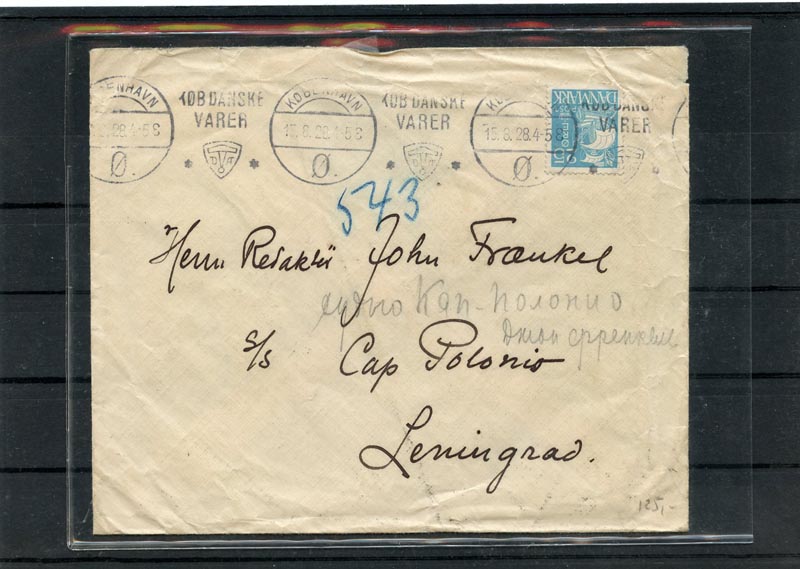 KØBENHAVN
28.4-5 8
Ø.
KØB DANSKE
VARER
KØBENHAVN
15.8.28.4-5 8
Ø.
KØB DANSKE
VARER
15.8.28.4-5 8
Ø.
KØB DANSKE
VARER
DANMARK
543
Herrn Redaktör John Frænkel
судно Кап-Полонио
Джон Френкель
s/s Cap Polonio
Leningrad.
125,-